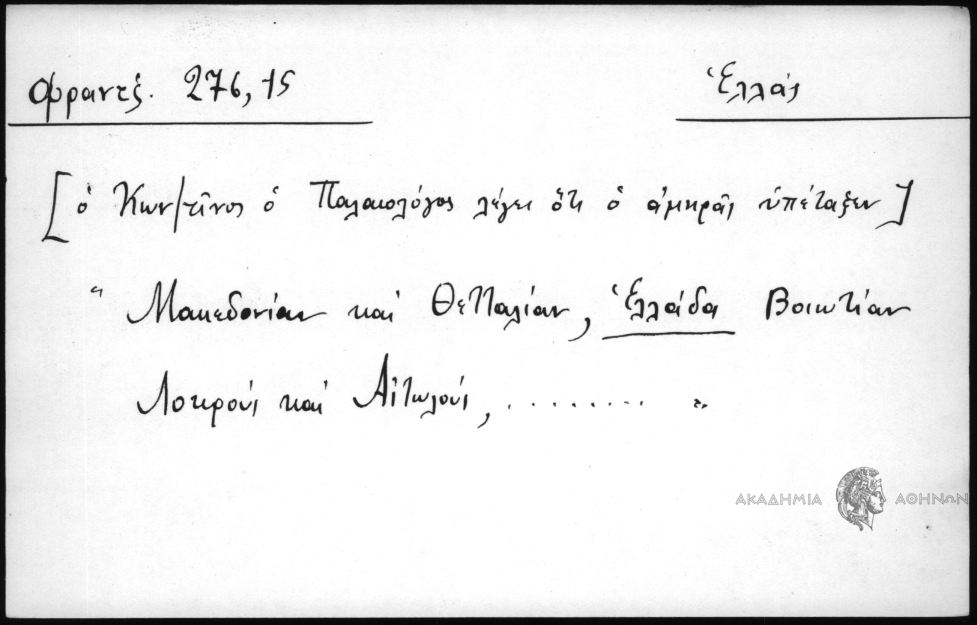 Φραντζ. 276, 15
Ἑλλάς
[ὁ Κων/τῖνος ὁ Παλαιολόγος λέγει ὅτι ὁ ἀμηρᾶς ὑπέταξεν]
“ Μακεδονίαν καὶ Θετταλίαν, Ἑλλάδα Βοιωτίαν
Λοκροὺς καὶ Αἰτωλούς, ......... ”
ΑΚΑΔΗΜΙΑ ΑΘΗΝΩΝ